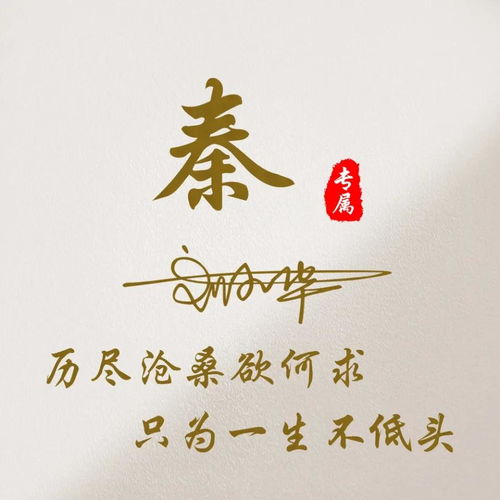 秦
专属
历尽沧桑欲何求
只为一生不低头